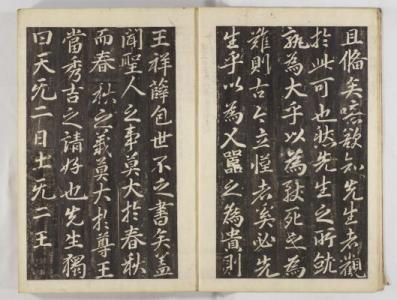 且偹矣嘻欲知先生者觀
於此可也然先生之所就
孰為大乎以為致死之為
難則古今立慬者奚必先
生乎以為乂嚚之為貴則
王祥薛包世不乏書矣盖
聞聖人之事莫大於春秋
而春秋之義莫大於尊王
當秀吉之請好也先生獨
曰天无二日土无二王